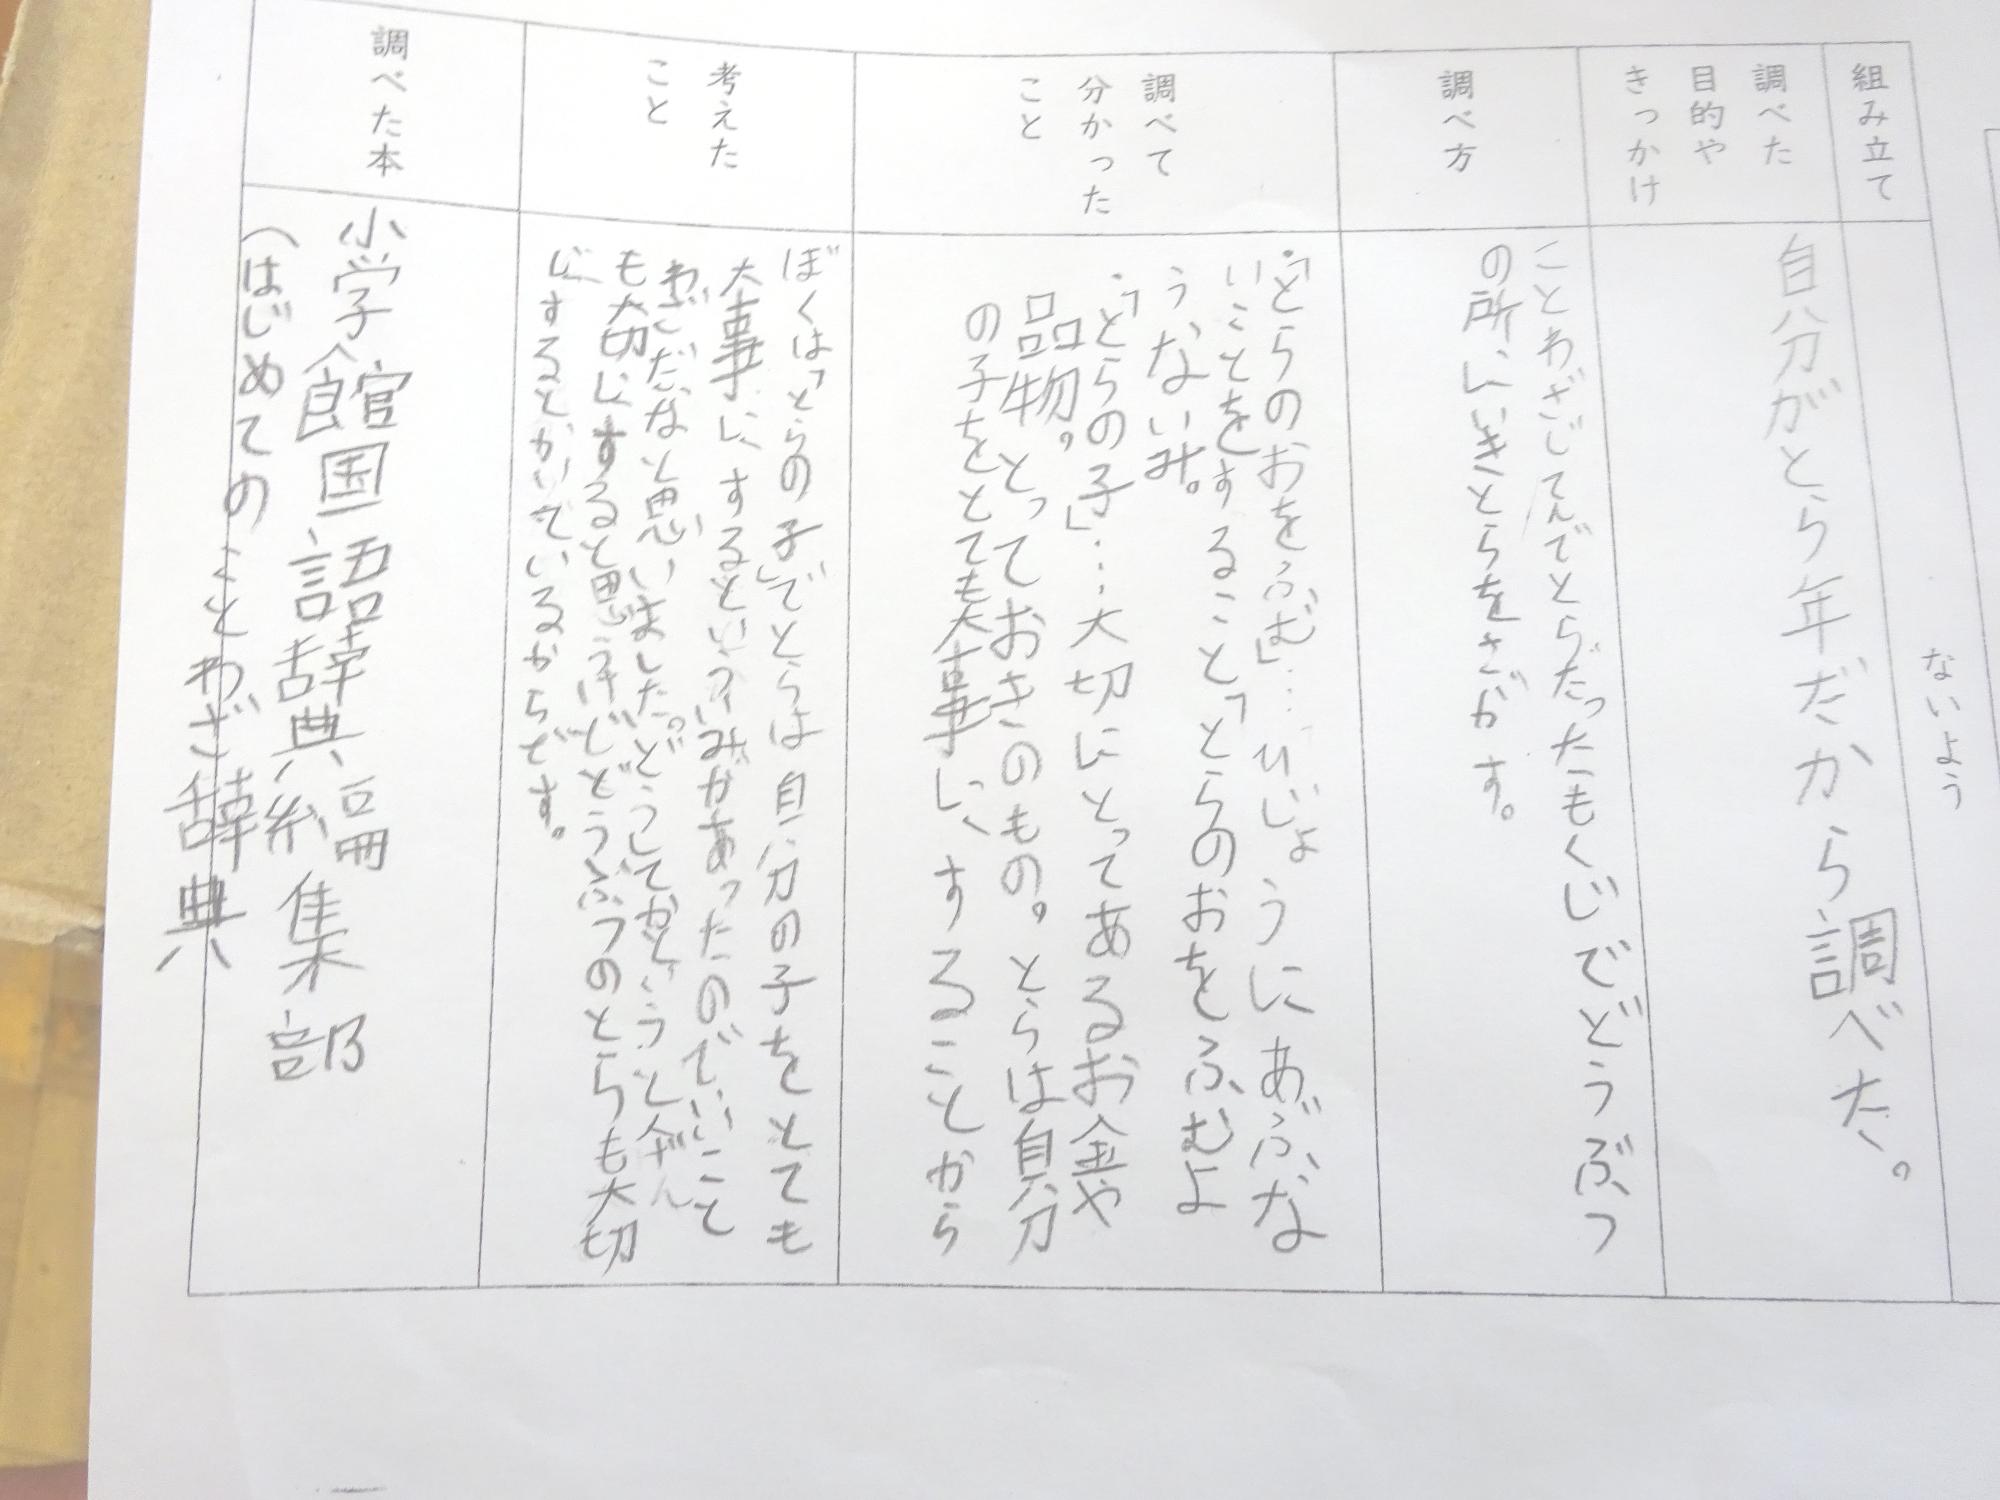 組み立て
ないよう
調べた
目的や
きっかけ
自分がとら年だから調べた。
調べ方
ことわざじてんでとらだったもくじでどうぶつ
の所にいきとらをさがす。
調べて
分かった
こと
・「とらのおをふむ」…ひじょうにあぶな
いことをすること「とらのおをふむよ
うない み。
・「とらの子」…大切にとってあるお金や
品物。とっておきのもの。とらは自分
の子をとても大事にすることから
考えた
こと
ぼくは「とらの子」でとらは自分の子をとても
大事にするといういみがあったのでいいこと
わざだなと思いました。どうしてかというとにんげん
も大切にすると思うけどどうぶつのとらも大切
にするとかいているからです。
調べた本
小学館国語辞典編集部
(はじめてのことわざ辞典